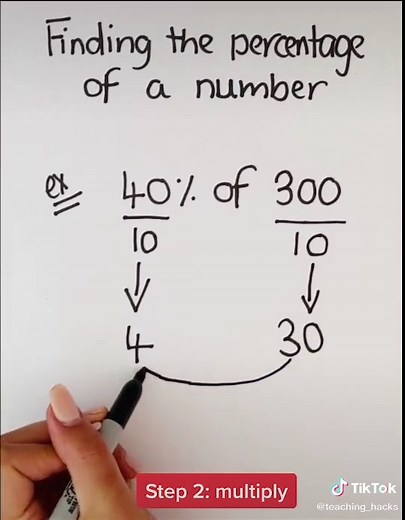 Finding the percentage
of a number
ex 40% of 300
10 10
4 30
Step 2: multiply
TikTok
@teaching_hacks